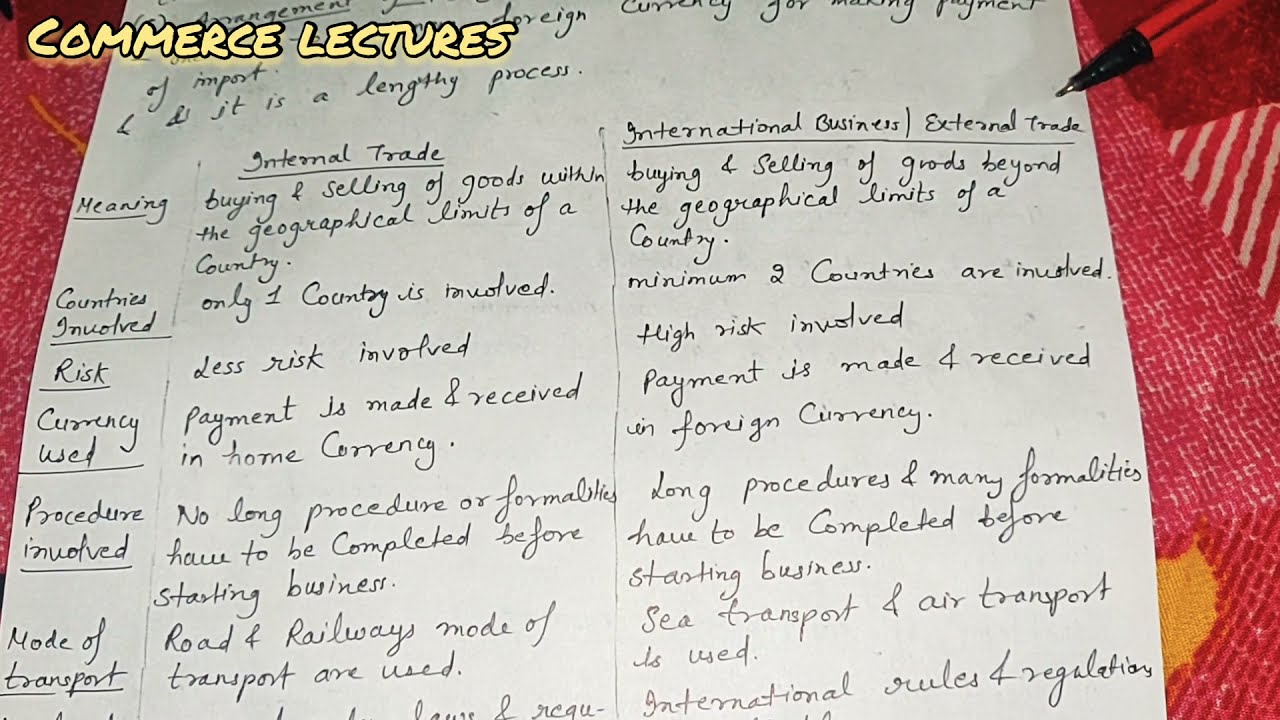 COMMERCE LECTURES
Arrangement
foreign Currency for making payment
of import.
& it is a lengthy process.
Internal Trade
International Business / External Trade
Meaning
buying & selling of goods within
the geographical limits of a
Country.
buying & Selling of goods beyond
the geographical limits of a
Country.
Countries
Involved
only 1 Country is involved.
minimum 2 Countries are involved.
Risk
Less risk involved
High risk involved
Currency
used
Payment is made & received
in home Currency.
Payment is made & received
in foreign Currency.
Procedure
involved
No long procedure or formalities
have to be Completed before
starting business.
Long procedures & many formalities
have to be Completed before
starting business.
Mode of
transport
Road & Railways mode of
transport are used.
Sea transport & air transport
is used.
laws & regu-
International rules & regulations